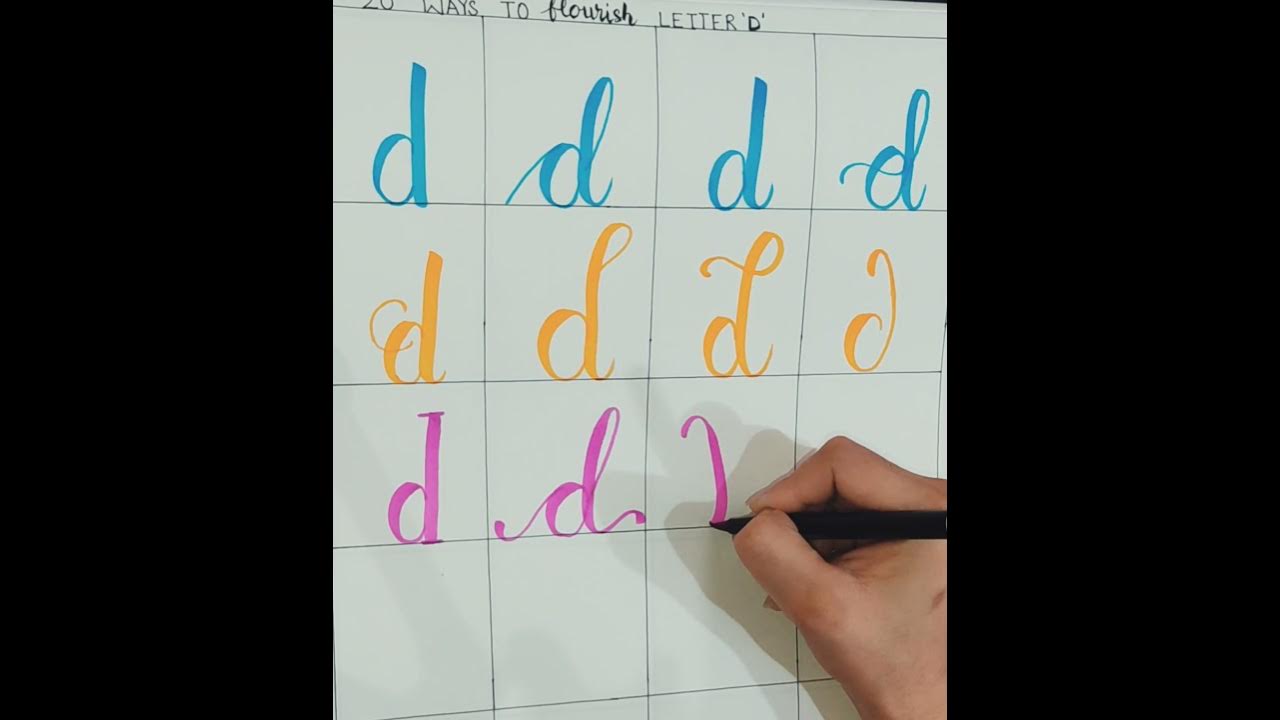 20 WAYS TO flourish LETTER 'D'
d d d d
d d d d
d d